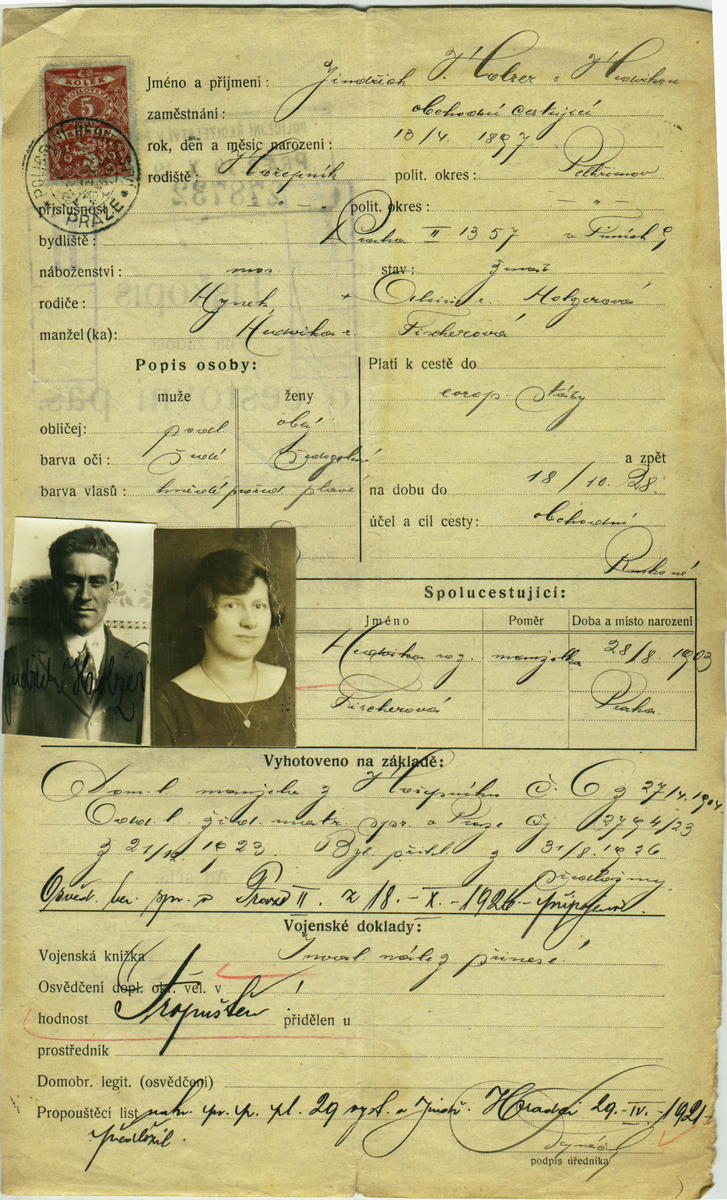 KOLEK
5
PRAZE
Jméno a příjmení: Jindřich Holzer s Hedvikou
zaměstnání: obchodní cestující
rok, den a měsíc narození: 13/4. 1897
rodiště: Hořepník polit. okres: Pelhřimov
příslušnost — „ — polit. okres: — „ —
278732
bydliště: Praha II 1357
náboženství: mos. stav: ženat
rodiče: Hynek + r. Holzerová
manžel(ka): Hedvika r. Fischerová
Popis osoby:
muže ženy
obličej: podl. obl.
barva očí: šedé
barva vlasů: hnědé plavé
Platí k cestě do
evrop. státy
a zpět
na dobu do 18/10. 28.
účel a cíl cesty: obchodní
Rakousko
Spolucestující:
Jméno Poměr Doba a místo narození
Hedvika roz. manželka 28/8. 1903
Fischerová Praha
Jindřich Holzer
Vyhotoveno na základě:
Dom. l. manžela z Hořepníku č. 6 z 27/4. 1904.
Odd. l. žid. matr. spr. v Praze čj 2794/23
z 21/10. 1923. Byl. přihl. z 31/8. 1926
předloženy
Osvěd. ber. spr. v Praze II. z 18.-X.-1926 připojeno.
Vojenské doklady:
Vojenská knížka Inval. nález přinese!
Osvědčení dopl. okr. vel. v
hodnost přidělen u
Propuštěn
prostředník
Domobr. legit. (osvědčení)
Propouštěcí list nahr. pr. p. pl. 29 vyst. v Jindř. Hradci 29.-IV.-1921
předložil.
podpis úředníka